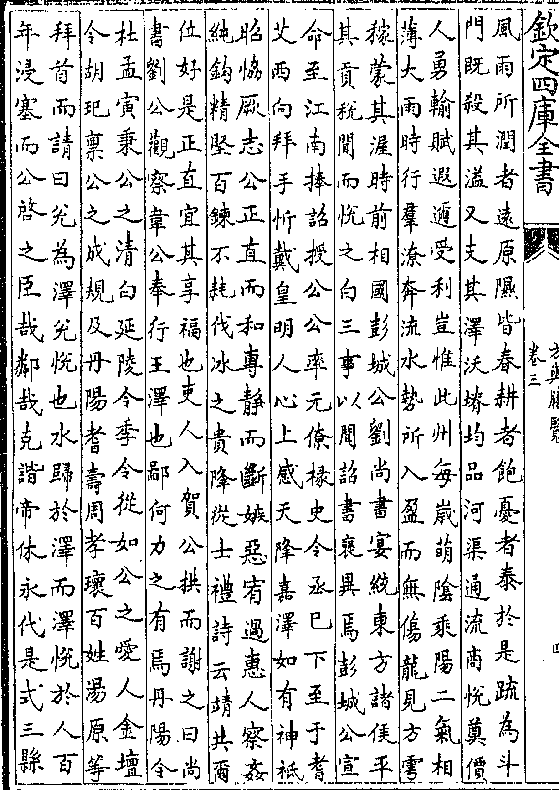 欽定四庫全書
方輿勝覽
卷三
四
風雨所潤者遠原隰皆春耕者飽憂者泰於是疏為斗
門既殺其溢又支其澤沃塉均品河渠通流商悅奠價
人勇輸賦遐邇受利豈惟此州每歲萌陰乘陽二氣相
薄大雨時行羣潦奔流水勢所入盈而無傷龍見方雩
稼蒙其渥時前相國彭城公劉尚書宴統東方諸侯平
其貢稅聞而悅之白三事以聞詔書褒異焉彭城公宣
命至江南捧詔授公公率元僚椽史令丞已下至于耆
艾西向拜手忻戴皇明人心上感天降嘉澤如有神祗
昭恊厥志公正直而和專静而斷嫉惡宥過惠人察姦
純鈎精堅百鍊不耗伐冰之貴降從士禮詩云靖共爾
位好是正直宜其享福也吏人入賀公拱而謝之曰尚
書劉公觀察韋公奉行王澤也鄙何力之有焉丹陽令
杜孟寅秉公之清白延陵令李令從如公之愛人金壇
令胡玘稟公之成規及丹陽耆壽周孝瓌百姓湯原等
拜首而請曰兊為澤兊悅也水歸於澤而澤悅於人百
年浸塞而公啓之臣哉鄰哉克諧帝休永代是式三縣